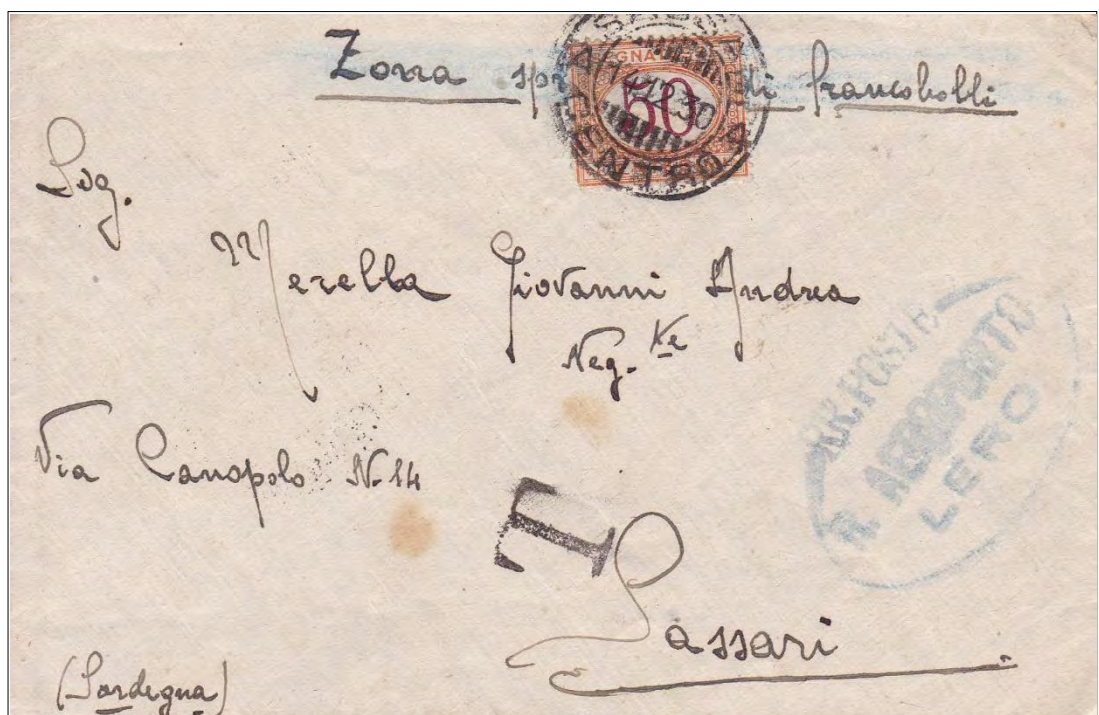 Zona spr di francobolli
SEGNA
50
CENTRO
Sig.
Merella Giovanni Andrea
Neg. te
Via Canopolo N. 14
T
Sassari
(Sardegna)
POSTE
R. AEROPORTO
LERO